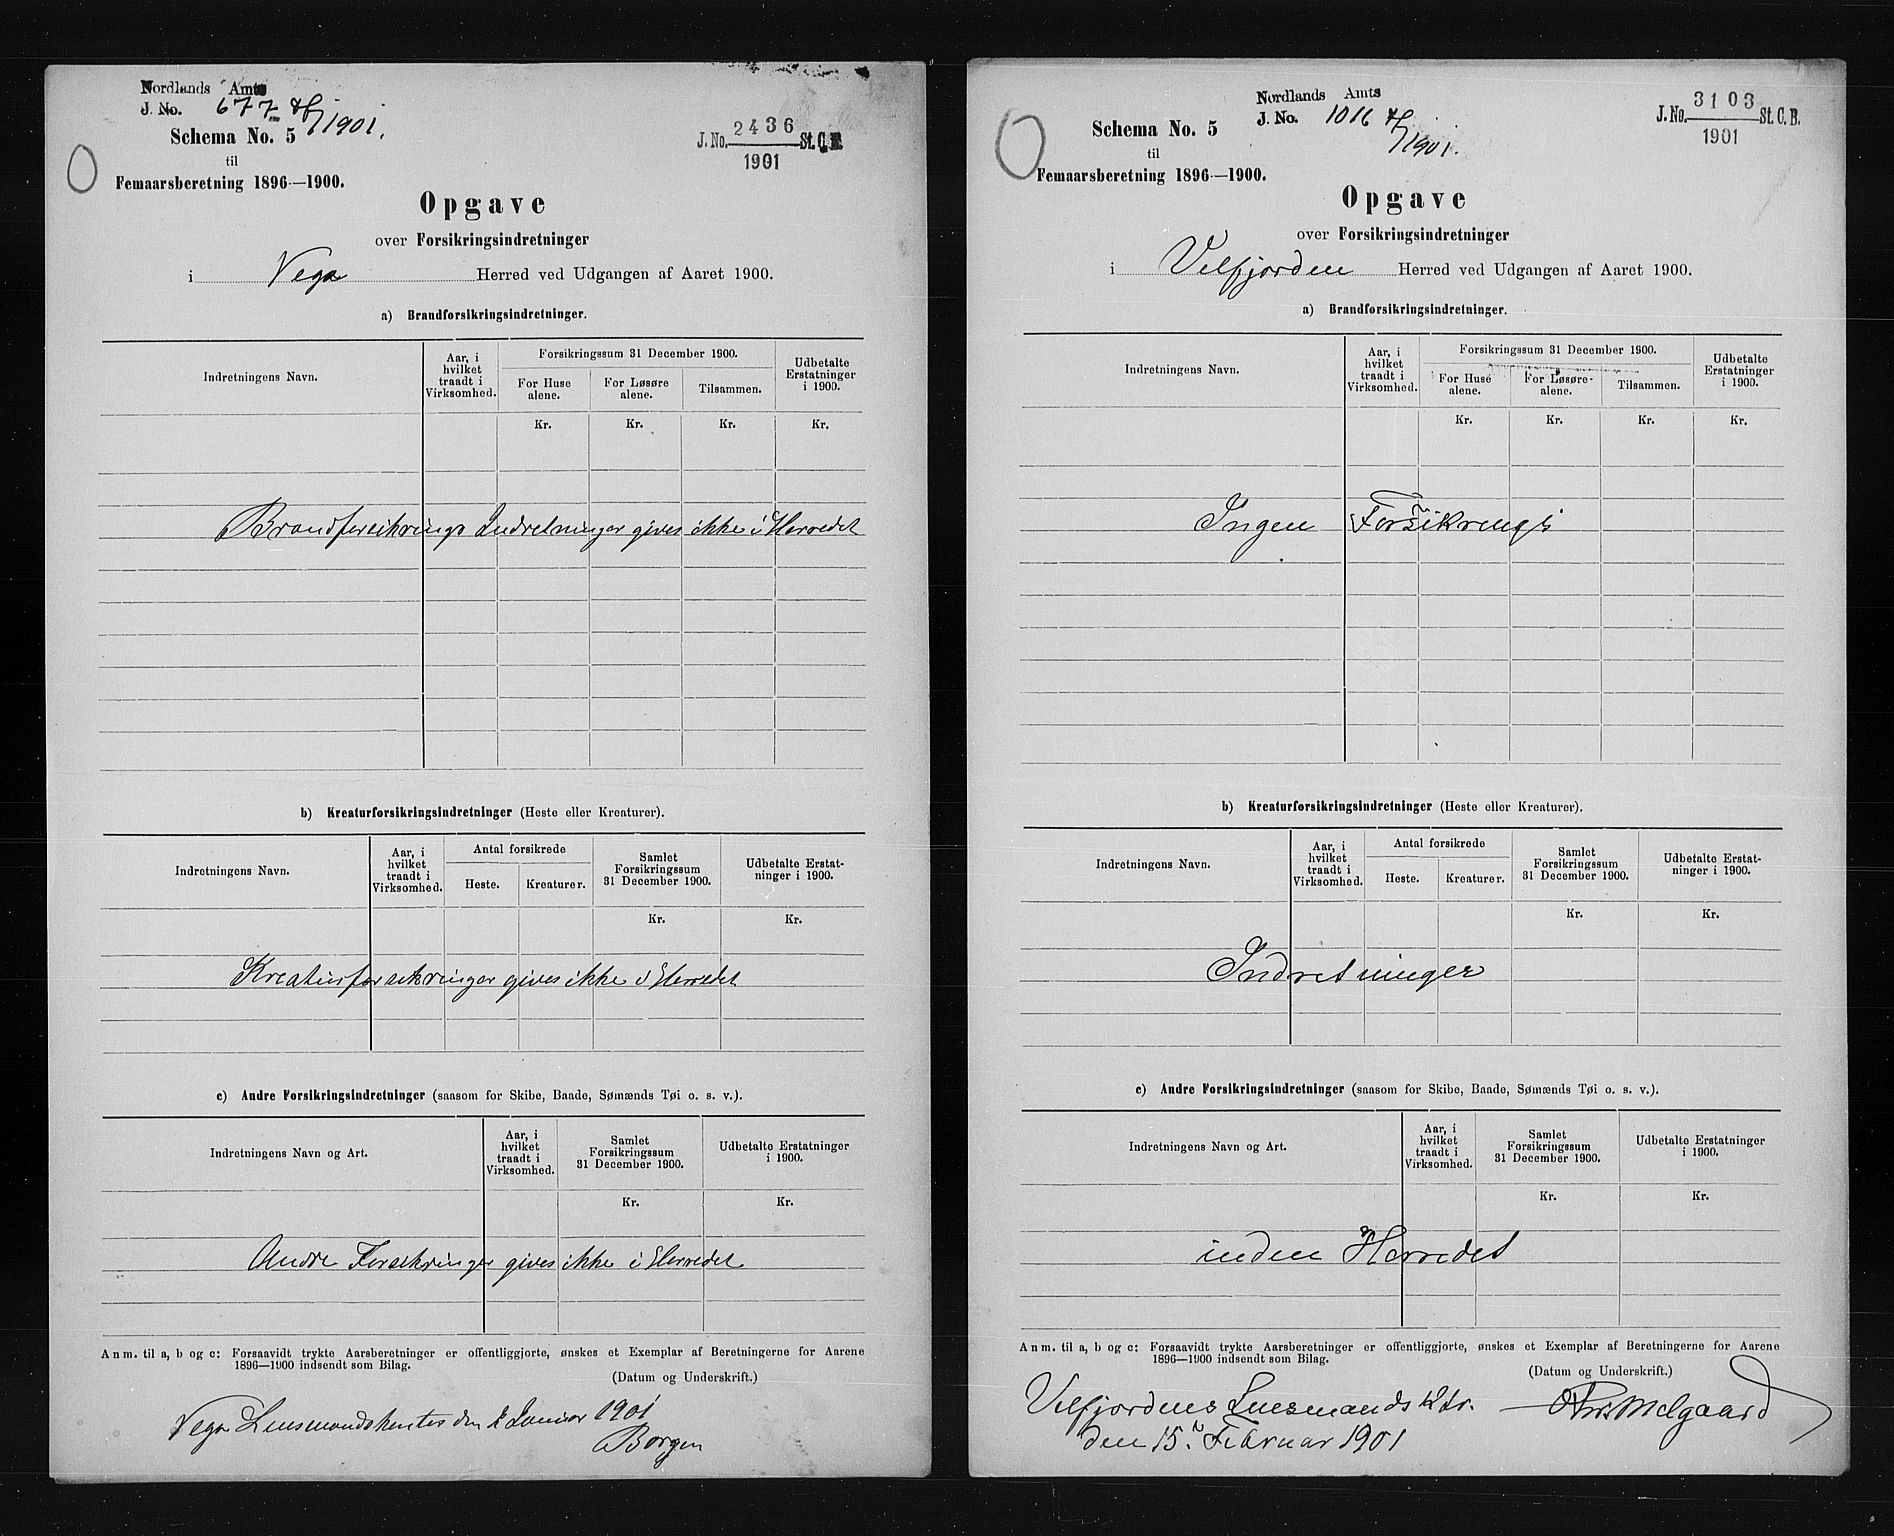 Nordlands Amts
J. No. 677 1901.
Schema No. 5
til
Femaarsberetning 1896—1900.
J. No. 2436 St. C. B.
1901
Opgave
over Forsikringsindretninger
i Vega Herred ved Udgangen af Aaret 1900.
a) Brandforsikringsindretninger.
Indretningens Navn.
Aar, i
hvilket
traadt i
Virksomhed.
Forsikringssum 31 December 1900.
For Huse
alene.
For Løsøre
alene.
Tilsammen.
Udbetalte
Erstatninger
i 1900.
Kr. Kr. Kr. Kr.
Brandforsikrings Indretninger gives ikke i Herredet
b) Kreaturforsikringsindretninger (Heste eller Kreaturer).
Indretningens Navn.
Aar, i
hvilket
traadt i
Virksomhed.
Antal forsikrede
Heste. Kreaturer.
Samlet
Forsikringssum
31 December 1900.
Udbetalte Erstat-
ninger i 1900.
Kr. Kr.
Kreaturforsikringer gives ikke i Herredet
c) Andre Forsikringsindretninger (saasom for Skibe, Baade, Sømænds Tøi o. s. v.).
Indretningens Navn og Art.
Aar, i
hvilket
traadt i
Virksomhed.
Samlet
Forsikringssum
31 December 1900.
Udbetalte Erstatninger
i 1900.
Kr. Kr.
Andre Forsikringer gives ikke i Herredet
Anm. til a, b og c: Forsaavidt trykte Aarsberetninger er offentliggjorte, ønskes et Exemplar af Beretningerne for Aarene
1896—1900 indsendt som Bilag.
(Datum og Underskrift.)
Vega Lensmandskontor den Januar 1901
Borgen
Nordlands Amts
J. No. 1016 1901.
Schema No. 5
til
Femaarsberetning 1896—1900.
J. No. 3103 St. C. B.
1901
Opgave
over Forsikringsindretninger
i Velfjorden Herred ved Udgangen af Aaret 1900.
a) Brandforsikringsindretninger.
Indretningens Navn.
Aar, i
hvilket
traadt i
Virksomhed.
Forsikringssum 31 December 1900.
For Huse
alene.
For Løsøre-
alene.
Tilsammen.
Udbetalte
Erstatninger
i 1900.
Kr. Kr. Kr. Kr.
Ingen Forsikrings
b) Kreaturforsikringsindretninger (Heste eller Kreaturer).
Indretningens Navn.
Aar, i
hvilket
traadt i
Virksomhed.
Antal forsikrede
Heste. Kreaturer.
Samlet
Forsikringssum
31 December 1900.
Udbetalte Erstat-
ninger i 1900.
Kr. Kr.
Indretninger
c) Andre Forsikringsindretninger (saasom for Skibe, Baade, Sømænds Tøi o. s. v.).
Indretningens Navn og Art.
Aar, i
hvilket
traadt i
Virksomhed.
Samlet
Forsikringssum
31 December 1900.
Udbetalte Erstatninger
i 1900.
Kr. Kr.
inden Herredet
Anm. til a, b og c: Forsaavidt trykte Aarsberetninger er offentliggjorte, ønskes et Exemplar af Beretningerne for Aarene
1896—1900 indsendt som Bilag.
(Datum og Underskrift.)
Velfjordens Lensmandsktr.
den 15. Februar 1901
Melgaard